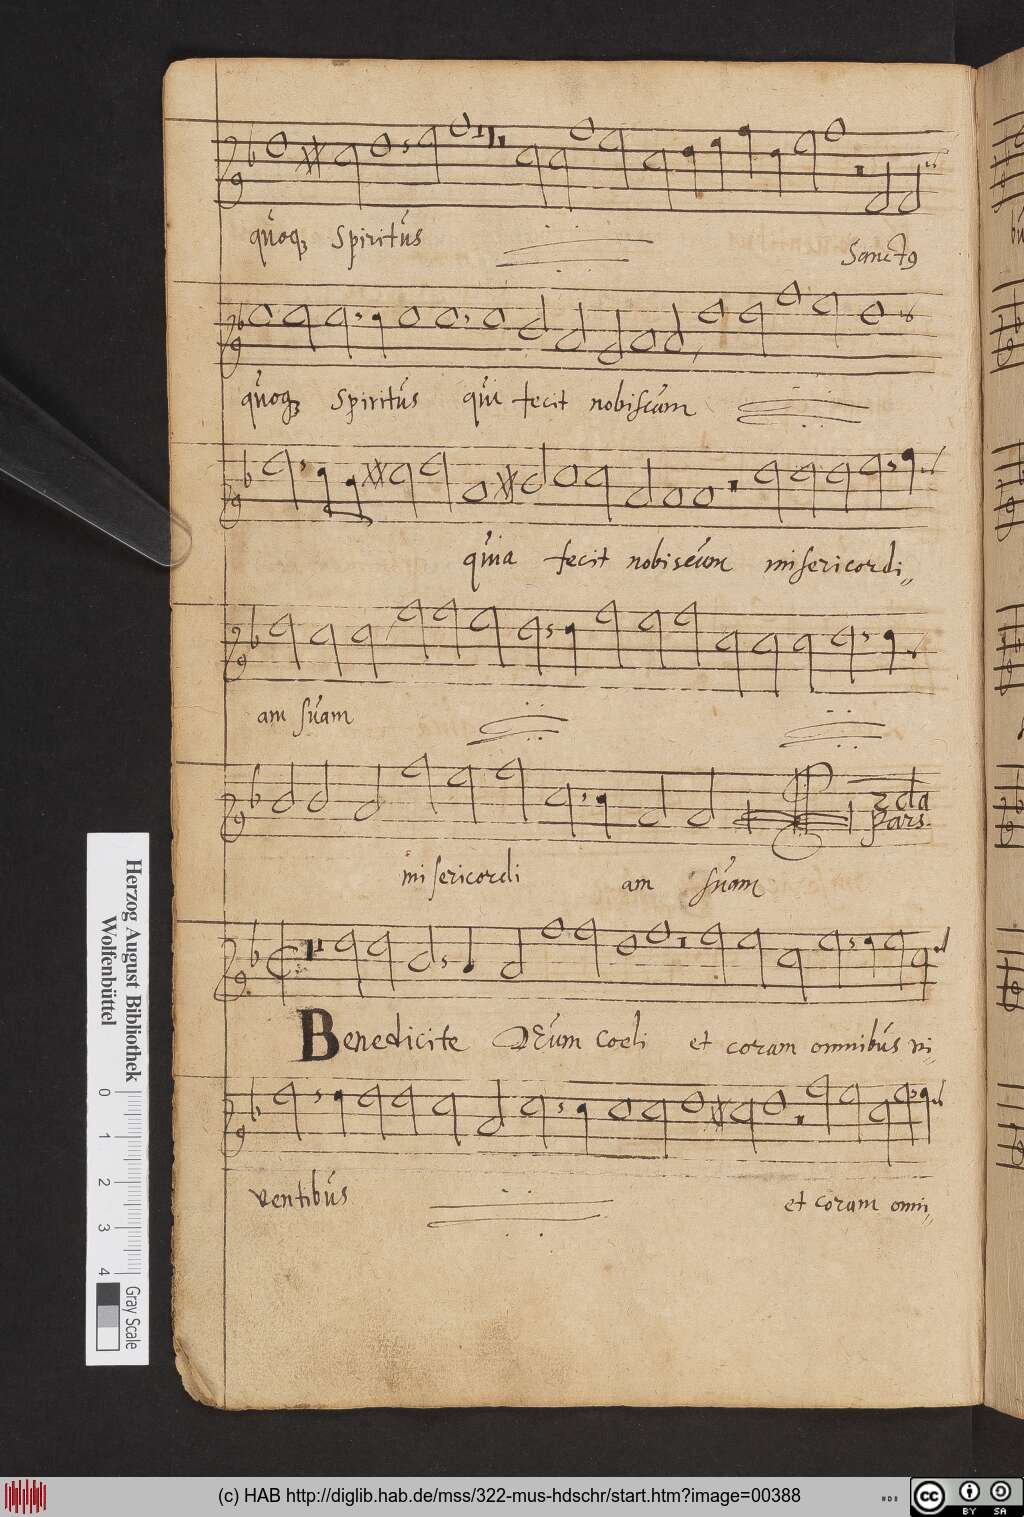 quoqꝫ Spiritus Sanctꝰ
quoqꝫ Spiritus qui fecit nobiscum
quia fecit nobiscum misericordi„
am suam
2da
Pars.
misericordi am suam
Benedicite DEum Coeli et coram omnibus vi„
ventibus et coram omni„
Herzog August Bibliothek
Wolfenbüttel
0 1 2 3 4
Gray Scale
(c) HAB http://diglib.hab.de/mss/322-mus-hdschr/start.htm?image=00388
cc BY SA